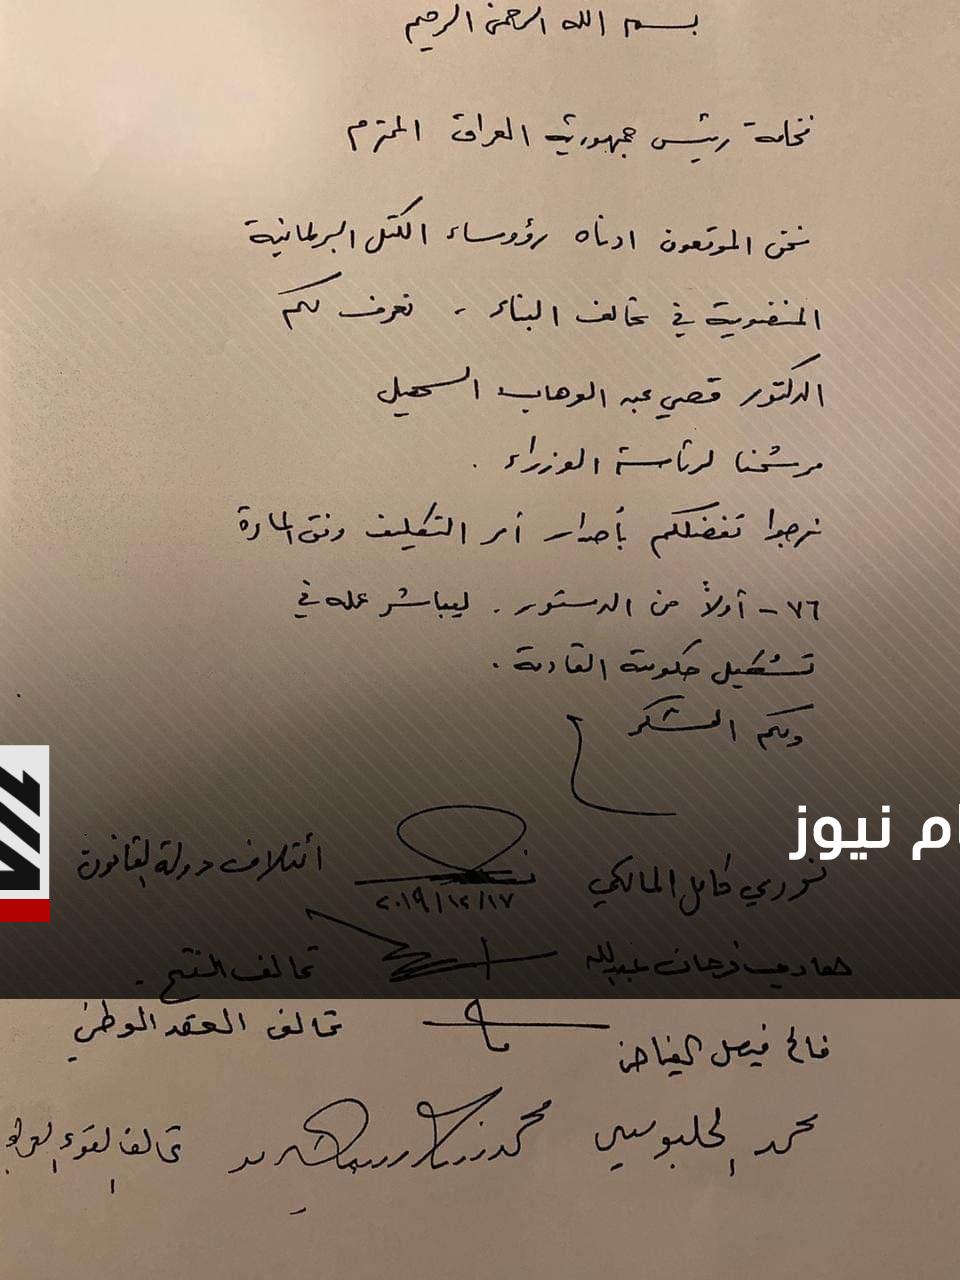 بسم الله الرحمن الرحيم
فخامة رئيس جمهورية العراق المحترم
نحن الموقعون ادناه رؤوساء الكتل البرلمانية
المنضوية في تحالف البناء ، نعرف لكم
الدكتور قصي عبد الوهاب السهيل
مرشحنا لرئاسة الوزراء .
نرجوا تفضلكم بأصدار أمر التكليف وفق المادة
٧٦ - أولاً من الدستور . ليباشر عمله في
تشكيل حكومته القادمة .
ولكم الشكر
ام نيوز
نوري كامل المالكي ٢٠١٩/١٢/١٧ أئتلاف دولة القانون
هادي فرحان عبدالله تحالف الفتح .
فالح فيصل الفياض تحالف العقد الوطني
محمد الحلبوسي تحالف القوى